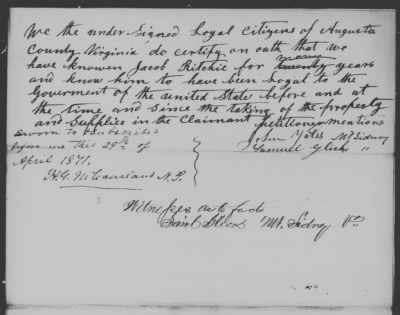 We the under Signed Loyal Citizens of Augusta
County Virginia do certify on oath that we
have knowen Jacob Ritchie for many years
and know him to have been Loyal to the
Goverment of the united State before and at
the time and since the taking of the property
and Supplies in the Claimant petitioner mentions
Sworn to & subscribed
before me this 29th of
April 1871.
John Yates Mt Sidney
Samuel Glick "
N.P.
Witnesses as to facts
Saml Glick Mt. Sidney Va